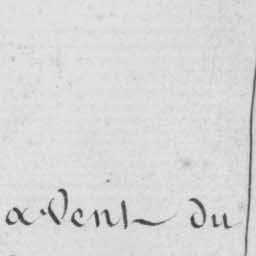 avent du